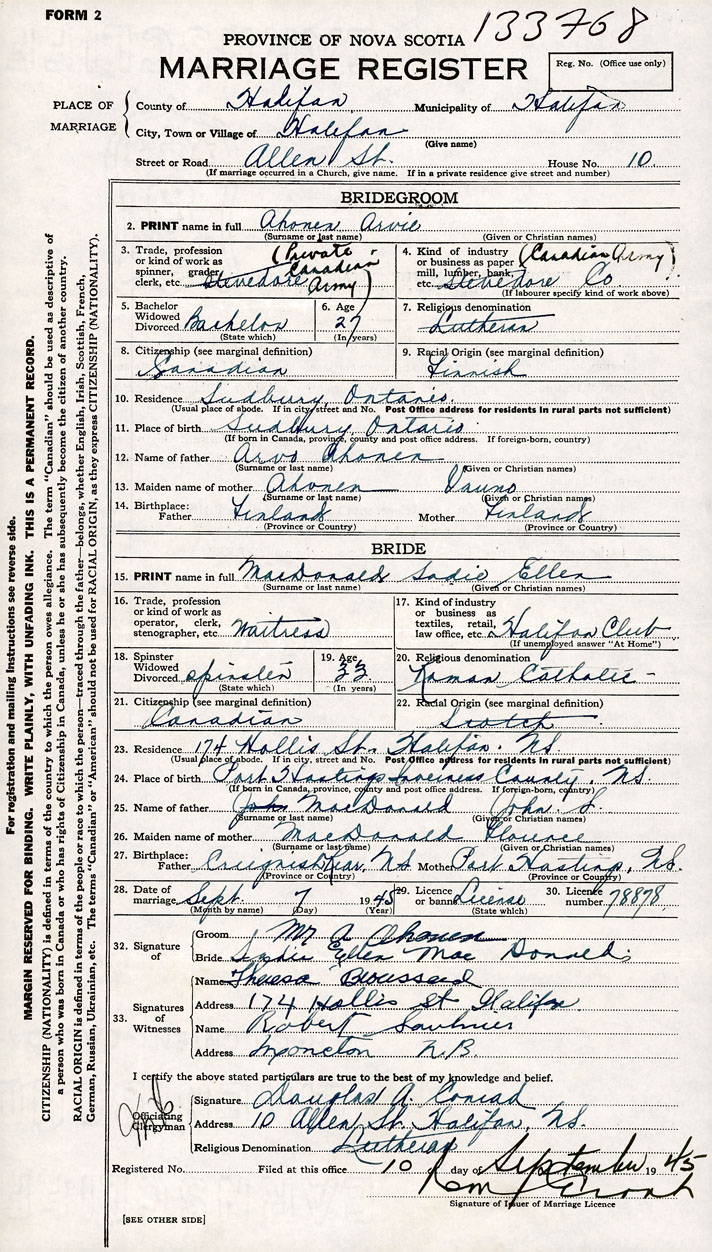 FORM 2
133768
PROVINCE OF NOVA SCOTIA
MARRIAGE REGISTER
Reg. No. (Office use only)
PLACE OF MARRIAGE
County of Halifax Municipality of Halifax
City, Town or Village of Halifax
(Give name)
Street or Road Allen St. House No. 10
(If marriage occurred in a Church, give name. If in a private residence give street and number)
BRIDEGROOM
2. PRINT name in full Ahonen Arvie
(Surname or last name) (Given or Christian names)
3. Trade, profession or kind of work as spinner, grader, clerk, etc. Stevedore (Private Canadian Army)
4. Kind of industry or business as paper mill, lumber, bank, etc. Stevedore Co (Canadian Army)
(If labourer specify kind of work above)
5. Bachelor Widowed Divorced Bachelor
(State which)
6. Age 27
(In years)
7. Religious denomination
Lutheran
8. Citizenship (see marginal definition)
Canadian
9. Racial Origin (see marginal definition)
Finnish
10. Residence Sudbury, Ontario
(Usual place of abode. If in city, street and No. Post Office address for residents in rural parts not sufficient)
11. Place of birth Sudbury, Ontario
(If born in Canada, province, county and post office address. If foreign-born, country)
12. Name of father Arvo Ahonen
(Surname or last name) (Given or Christian names)
13. Maiden name of mother Ahonen
(Surname or last name) (Given or Christian names)
14. Birthplace: Father Finland Mother Finland
(Province or Country) (Province or Country)
BRIDE
15. PRINT name in full MacDonald Sadie Ellen
(Surname or last name) (Given or Christian names)
16. Trade, profession or kind of work as operator, clerk, stenographer, etc. Waitress
17. Kind of industry or business as textiles, retail, law office, etc. Halifax Club
(If unemployed answer "At Home")
18. Spinster Widowed Divorced Spinster
(State which)
19. Age 33
(In years)
20. Religious denomination
Roman Catholic
21. Citizenship (see marginal definition)
Canadian
22. Racial Origin (see marginal definition)
Scotch
23. Residence 174 Hollis St. Halifax. N.S.
(Usual place of abode. If in city, street and No. Post Office address for residents in rural parts not sufficient)
24. Place of birth Port Hastings Inverness County, N.S.
(If born in Canada, province, county and post office address. If foreign-born, country)
25. Name of father John MacDonald John
(Surname or last name) (Given or Christian names)
26. Maiden name of mother MacDonald Florence
(Surname or last name) (Given or Christian names)
27. Birthplace: Father Creignish, N.S. Mother Port Hastings, N.S.
(Province or Country) (Province or Country)
28. Date of marriage Sept. 7 1945
(Month by name) (Day) (Year)
29. Licence or banns License
(State which)
30. Licence number 78878
32. Signature of
Groom Mr A Ahonen
Bride Sadie Ellen Mac Donald
33. Signatures of Witnesses
Name Theresa Broussard
Address 174 Hollis St Halifax
Name Robert Saulnier
Address Moncton N.B.
I certify the above stated particulars are true to the best of my knowledge and belief.
Officiating Clergyman
Signature Douglas A. Conrad
Address 10 Allen St. Halifax, N.S.
Religious Denomination Lutheran
Registered No. Filed at this office 10 day of September 1945
Signature of Issuer of Marriage Licence
[SEE OTHER SIDE]
For registration and mailing instructions see reverse side.
MARGIN RESERVED FOR BINDING. WRITE PLAINLY, WITH UNFADING INK. THIS IS A PERMANENT RECORD.
CITIZENSHIP (NATIONALITY) is defined in terms of the country to which the person owes allegiance. The term "Canadian" should be used as descriptive of
a person who was born in Canada or who has rights of Citizenship in Canada, unless he or she has subsequently become the citizen of another country.
RACIAL ORIGIN is defined in terms of the people or race to which the person—traced through the father—belongs, whether English, Irish, Scottish, French,
German, Russian, Ukrainian, etc. The terms "Canadian" or "American" should not be used for RACIAL ORIGIN, as they express CITIZENSHIP (NATIONALITY).